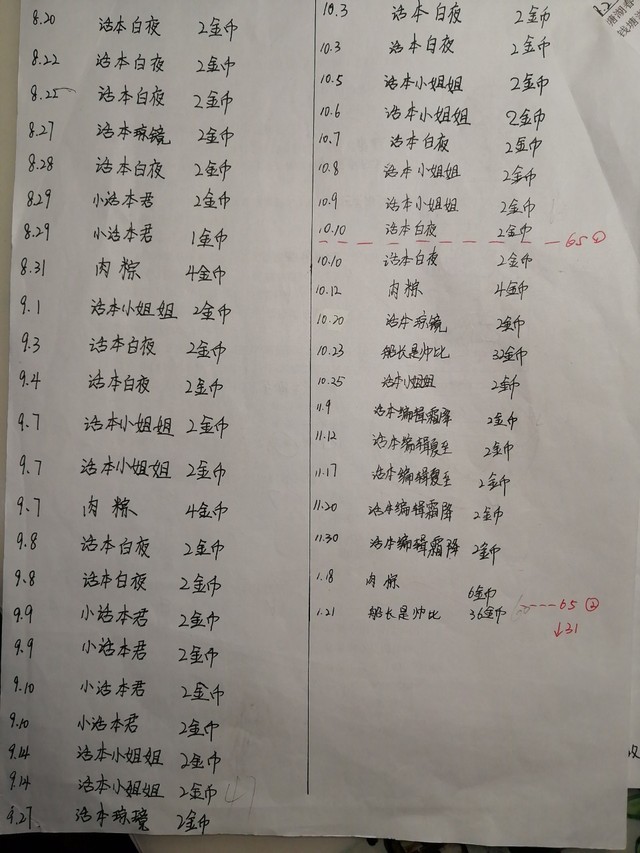 8.20 话本白夜 2金币
8.22 话本白夜 2金币
8.25 话本白夜 2金币
8.27 话本琼镜 2金币
8.28 话本白夜 2金币
8.29 小话本君 2金币
8.29 小话本君 1金币
8.31 肉粽 4金币
9.1 话本小姐姐 2金币
9.3 话本白夜 2金币
9.4 话本白夜 2金币
9.7 话本小姐姐 2金币
9.7 话本小姐姐 2金币
9.7 肉粽 4金币
9.8 话本白夜 2金币
9.8 话本白夜 2金币
9.9 小话本君 2金币
9.9 小话本君 2金币
9.10 小话本君 2金币
9.10 小话本君 2金币
9.14 话本小姐姐 2金币
9.14 话本小姐姐 2金币 47
9.27 话本琼镜 2金币
10.3 话本白夜 2金币
10.3 话本白夜 2金币
10.5 话本小姐姐 2金币
10.6 话本小姐姐 2金币
10.7 话本白夜 2金币
10.8 话本小姐姐 2金币
10.9 话本小姐姐 2金币
10.10 话本白夜 2金币
65 ①
10.10 话本白夜 2金币
10.12 肉粽 4金币
10.20 话本琼镜 2金币
10.23 船长是帅比 32金币
10.25 话本小姐姐 2金币
11.9 话本编辑霜降 2金币
11.12 话本编辑夏至 2金币
11.17 话本编辑夏至 2金币
11.20 话本编辑霜降 2金币
11.30 话本编辑霜降 2金币
1.18 肉粽 6金币
1.21 船长是帅比 36金币 65 ②
↓31